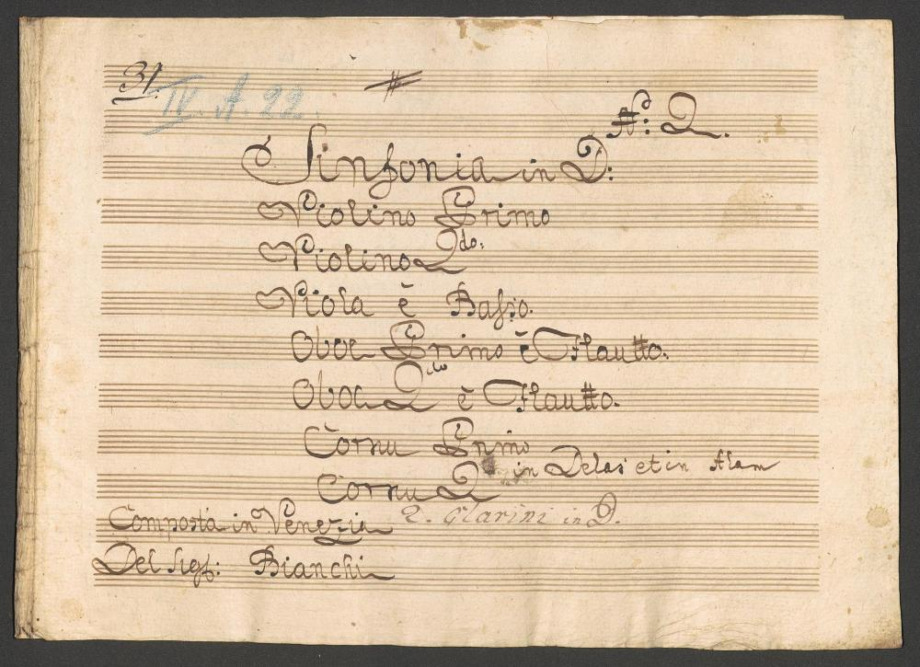 31.
IV. A. 22.
No: 2.
Sinfonia in D:
Violino Primo
Violino 2do:
Viola è Basso.
Oboe Primo è Flautto.
Oboe 2do è Flautto.
Cornu Primo
in Delas et in Alam
Cornu 2
2. Clarini in D.
Composta in Venezia
Del Sigr: Bianchi